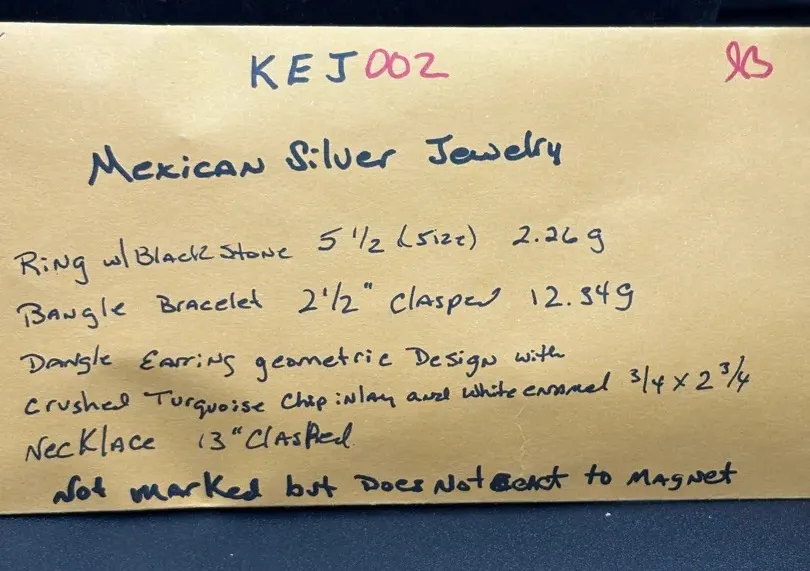 KEJ002
Mexican Silver Jewelry
Ring w/Black Stone 5 1/2 (size) 2.26 g
Bangle Bracelet 2 1/2" Clasped 12.34g
Dangle Earring geometric Design with
crushed Turquoise chip inlay and white enamel 3/4 x 2 3/4
Necklace 13" Clasped
Not marked but Does Not React to Magnet